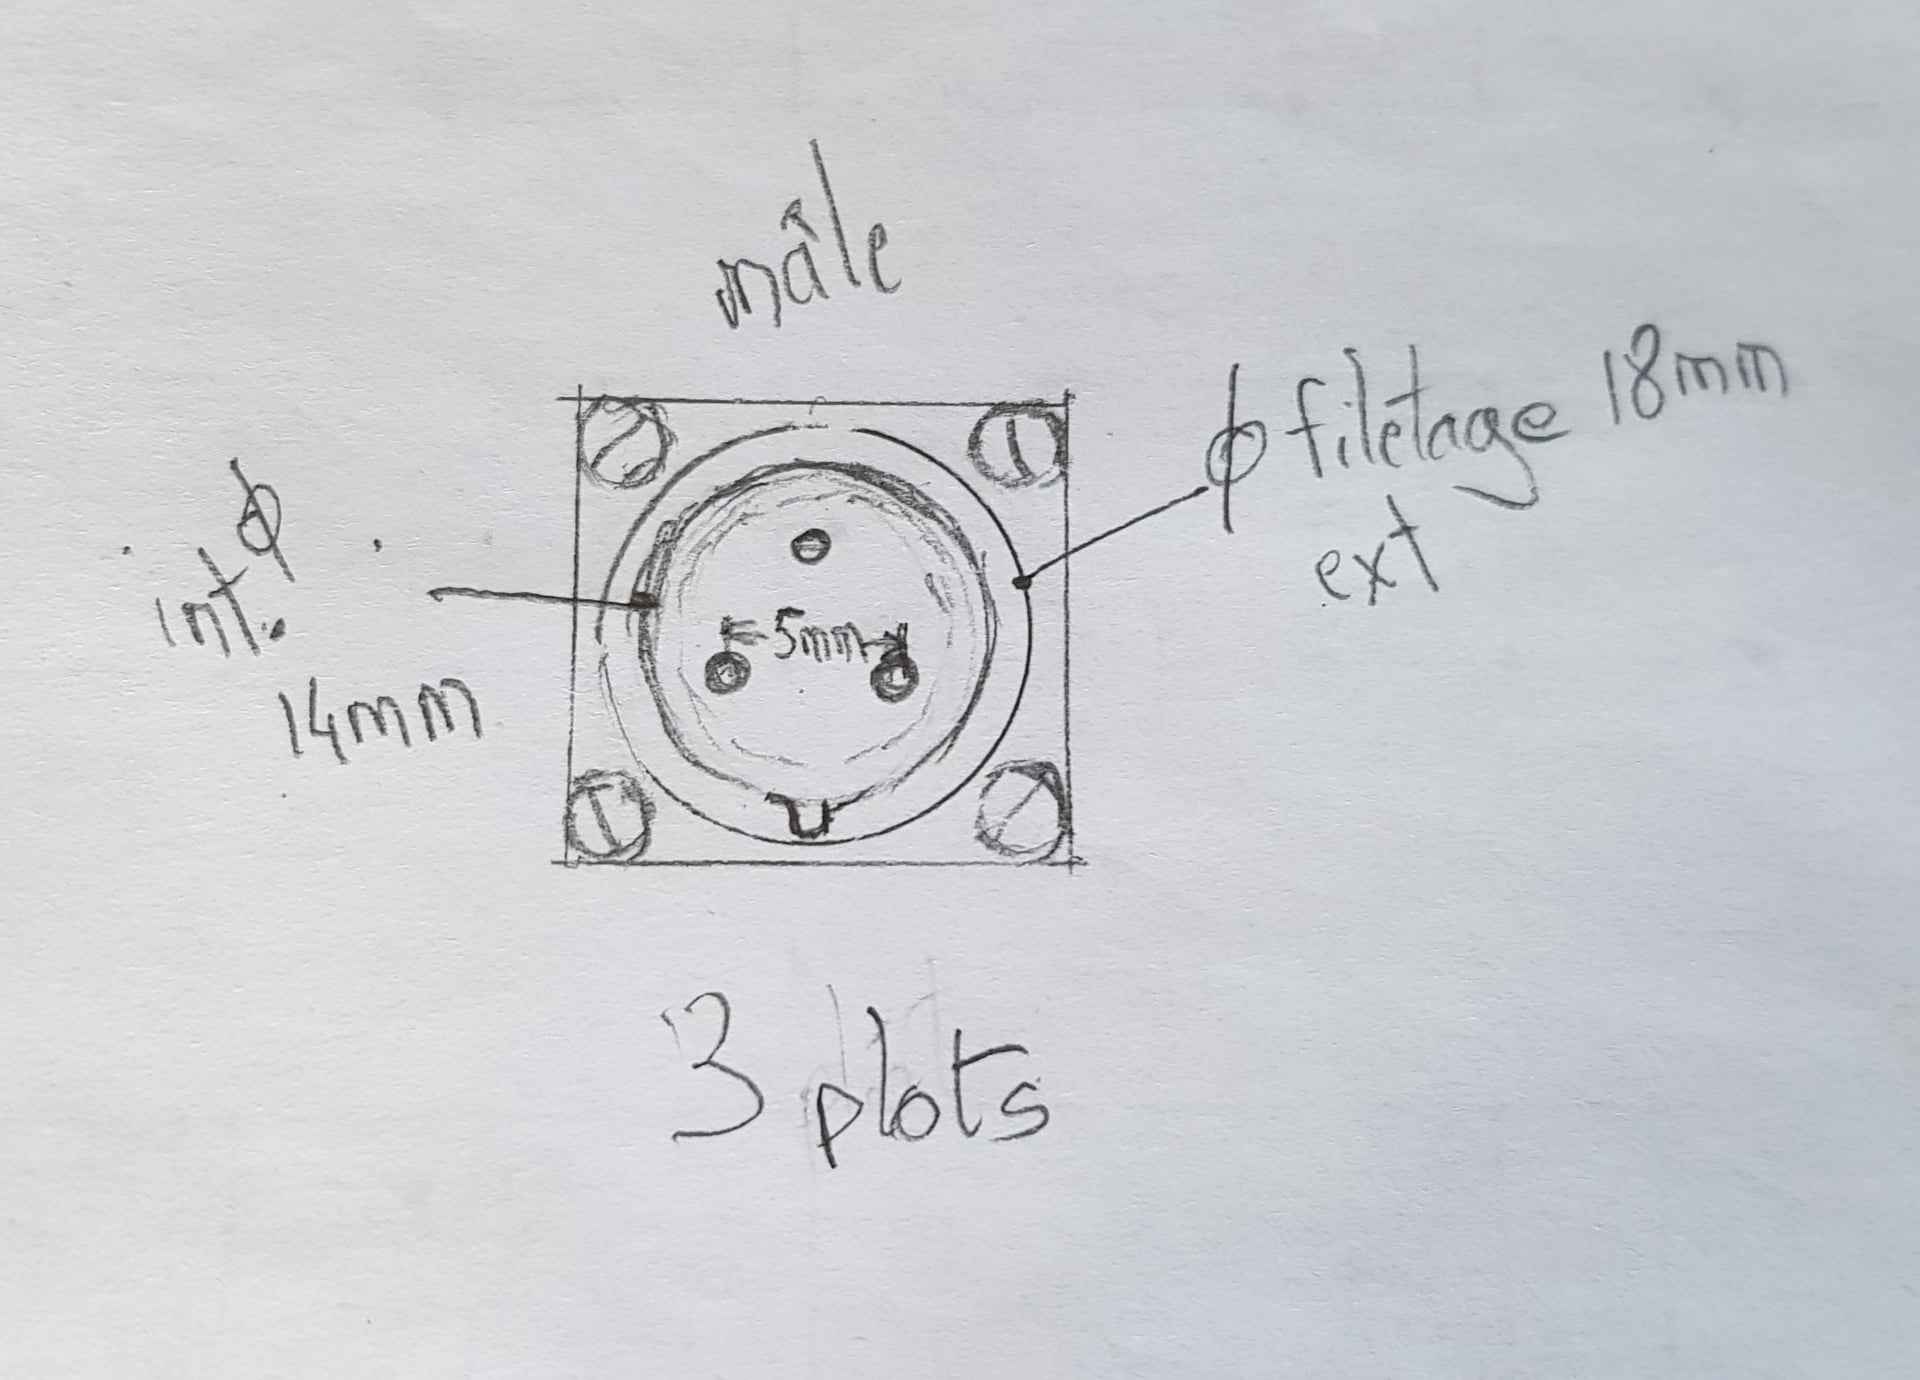 mâle
ϕ filetage 18mm
ext
ϕ
int.
14mm
5mm
3 plots